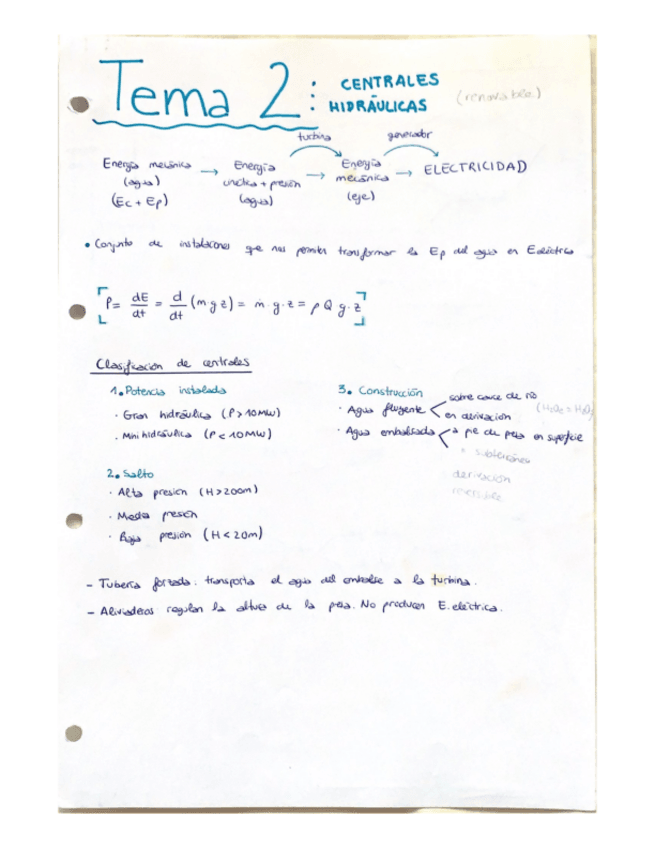 Tema 2: CENTRALES HIDRÁULICAS (renovable)
turbina generador
Energía mecánica (agua) (Ec + Ep) → Energía cinética + presión (agua) → Energía mecánica (eje) → ELECTRICIDAD
• Conjunto de instalaciones que nos permiten transformar la Ep del agua en E eléctrica
P = dE/dt = d/dt (m g z) = ṁ · g · z = ρ Q g · z
Clasificación de centrales
1. Potencia instalada
· Gran hidráulica (P > 10MW)
· Mini hidráulica (P < 10MW)
2. Salto
· Alta presión (H > 200m)
· Media presión
· Baja presión (H < 20m)
3. Construcción
· Agua fluyente < sobre cauce de río
en derivación
· Agua embalsada < a pie de presa en superficie
" subterránea
derivación
reversible
- Tubería forzada: transporta el agua del embalse a la turbina.
- Aliviaderos regulan la altura de la presa. No producen E. eléctrica.